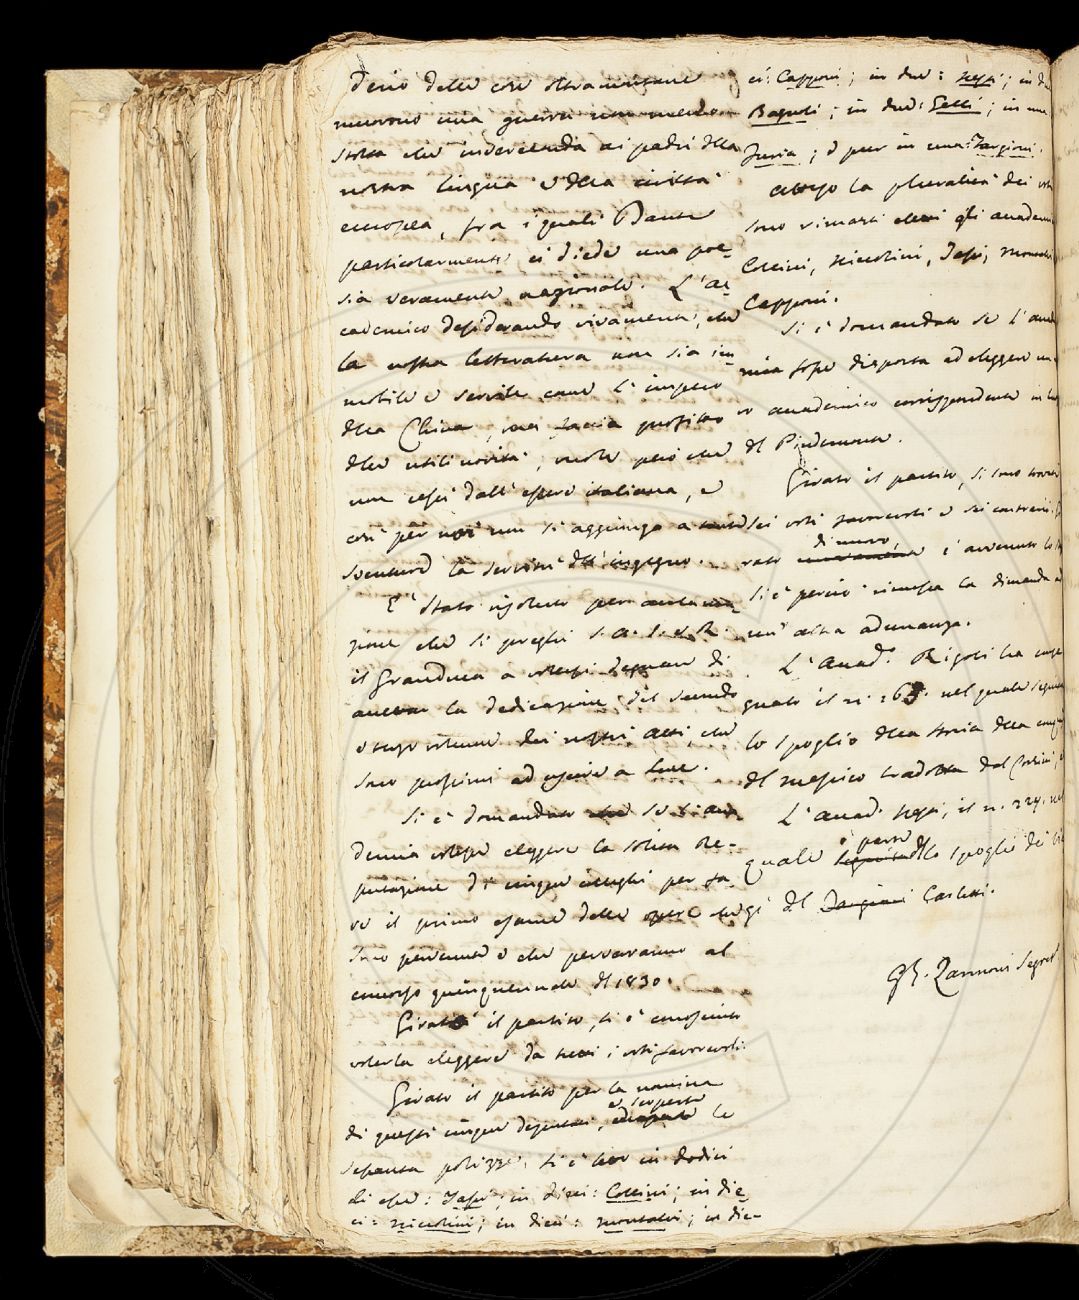 derio delle cose oltramontane
muovono una guerra non meno
stolta che inverecunda ai padri della
nostra lingua e della civiltà
europea, fra i quali Dante
particolarmente ci diede una poe-
sia veramente nazionale. L'ac-
cademico desiderando vivamente, che
la nostra letteratura non sia im-
mobile e servile come l'impero
della China, ma faccia profitto
delle utili novità, vuole però che
non cessi dall'essere italiana, e
così per noi non si aggiunga a tante
sventure la servitù dell'ingegno.
E' stato risoluto per acclama-
zione che si preghi S. A. I. e R.
il Granduca a volersi degnare di
accettare la dedicazione del secondo
e terzo volume dei nostri atti, che
sono prossimi ad uscire a luce.
Si è domandato che se l'acca-
demia volesse eleggere la solita De-
putazione di cinque colleghi per fa-
re il primo esame delle opere che
sono pervenute e che perverranno al
concorso quinquennale del 1830.
Girato il partito, si è conosciuto
volerla eleggere da tutti i voti favorevoli.
Girato il partito per la nomina
di questi cinque deputati, e scoperte le
sessanta polizze, si è letto in dodici
di esse: Tassi; in dieci: Collini; in die-
ci: Niccolini; in dieci: Montalvi; in die-
ci: Capponi; in due: Nessi; in
Bagnoli; in due: Gelli; in una
Furia; e pur in una: Targioni.
Atteso la pluralità dei voti
sono rimasti eletti gli accademici
Collini, Niccolini, Tassi, Montalvi
Capponi.
Si è domandato se l'acca-
mia fosse disposta ad eleggere un
vo accademico corrispondente in
del Pindemonte.
Girato il partito, si sono trovati
sei voti favorevoli e sei contrari.
rato di nuovo, è avvenuto lo
Si è perciò rimessa la dimanda ad
un'altra adunanza.
L'Accad.º Rigoli ha conse-
gnato il n. 163. nel quale seguita
lo spoglio della storia della conq
del Messico tradotta dal Corsini;
L'Accad. Nessi, il n. 224. nel
quale è parte dello spoglio dei
gi del Targioni Carletti.
G. B. Zannoni Segret.